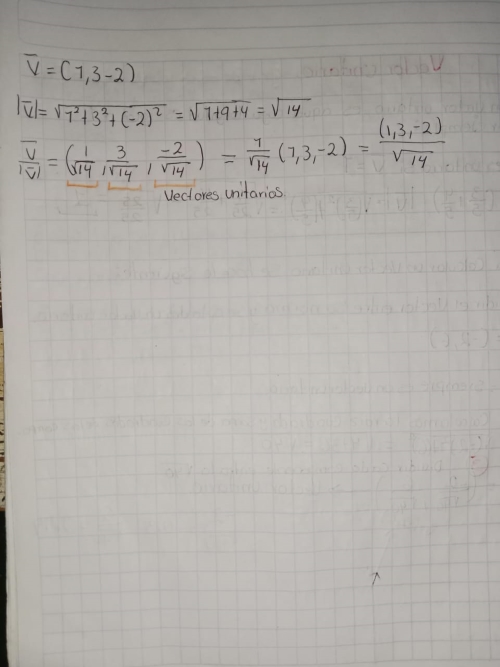 V̅ = (1, 3 - 2)
|V̅| = √1² + 3² + (-2)² = √1+9+4 = √14
V̅/|V̅| = (1/√14, 3/√14, -2/√14) = 1/√14 (1, 3, -2) = (1, 3, -2)/√14
Vectores unitarios.